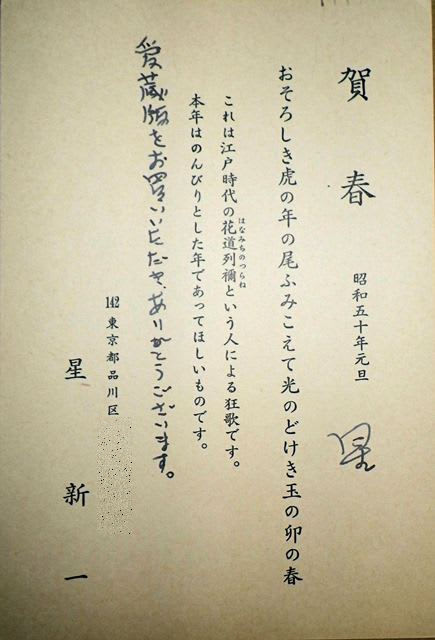 賀春
昭和五十年元旦
星
おそろしき虎の年の尾ふみこえて光のどけき玉の卯の春
これは江戸時代の花道列禰という人による狂歌です。
はなみちのつらね
本年はのんびりとした年であってほしいものです。
愛蔵版をお買いいただき、ありがとうございます。
142 東京都品川区
星新一